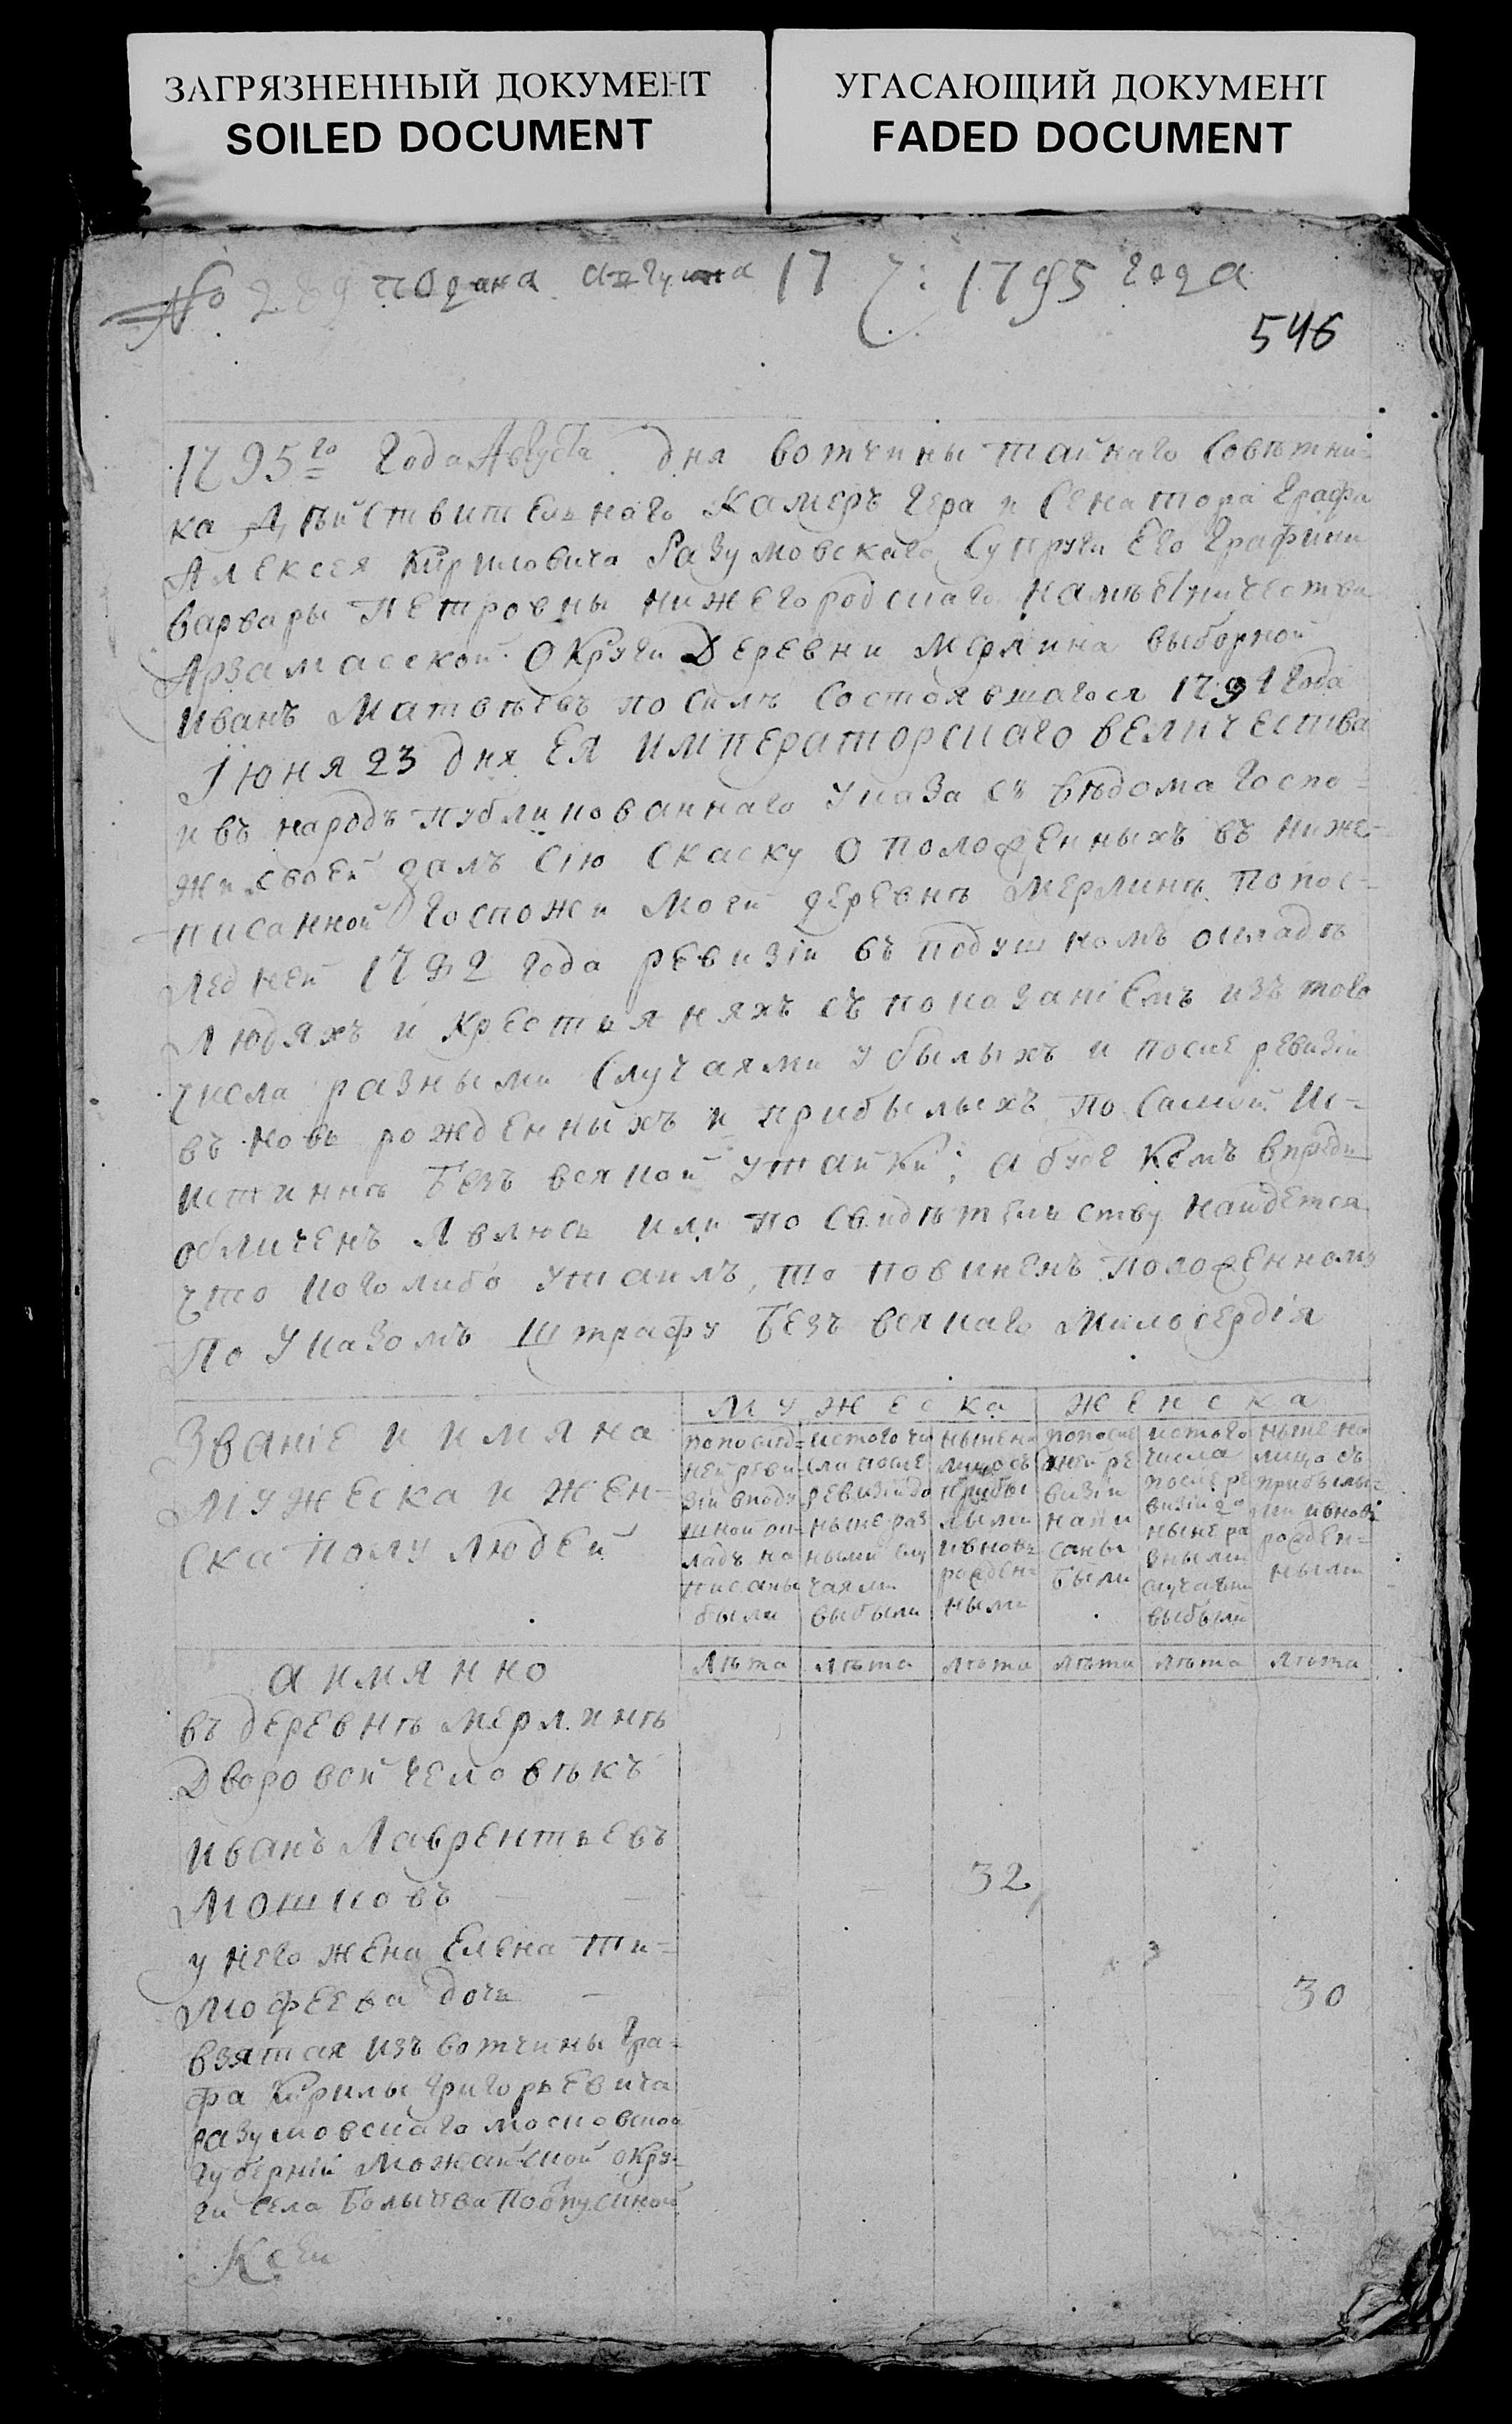 ЗАГРЯЗНЕННЫЙ ДОКУМЕНТ
SOILED DOCUMENT
УГАСАЮЩИЙ ДОКУМЕНТ
FADED DOCUMENT
№ 289 подана августа 17 ч: 1795 года
546
1795го Года Августа дня вотчины тайнаго Совѣтни-
ка Дѣйствительнаго Камеръ гера и Сенатора графа
Алексея Кириловича Разумовскаго Супруги Его Графини
варвары Петровны нижегородскаго намѣсничества
Арзамаской Округи Деревни Мерлина выборной
Иванъ Матвѣевъ по силѣ Состоявшагося 1794 года
Iюня 23 дня Ея императорскаго величества
и въ народъ публикованнаго Указа съ вѣдома госпо-
жи своей далъ сiю скаску о положенныхъ въ ниже-
писанной Госпожи моей деревнѣ Мерлинѣ попос-
ледней 1782 года ревизiи въ подушномъ окладѣ
Людяхъ и Крестьяняхъ съ показанiемъ изъ того
числа разными случаями убылыхъ и после ревизiи
въ новь рожденныхъ и прибылыхъ по самой Ис-
истиннѣ Безъ всякой утайки; а буде кемъ впредь
обличенъ явлюсь или по свидѣтельству найдется
что кого либо утаилъ, то повиненъ положенному
По Указомъ штрафу Безъ всякаго милосердiя
Званiе и имяна
мужеска и жен-
ска полу людей
мужеска
женска
попослед-
ней реви-
зiи вподу-
шной ок-
ладъ на
писаны
были
истого чи
сла после
ревизiи до
ныне раз
ными слу
чаями
выбыли
ныне на
лицо съ
прибы
лыми
ивновь
рожден-
ными
попосле
дней ре
визiи
напи
саны
были
истого
числа
после ре
визiи до
ныне ра
зными
случаями
выбыли
ныне на
лицо съ
прибылы-
ми ивновь
рожден-
ными
Лѣта Лѣта Лѣта Лѣта Лѣта Лѣта
а имянно
въ деревнѣ мерлинѣ
Дворовой человѣкъ
иванъ Лаврентьевъ
Мошковъ 32
у него жена Елена Ти-
мофеева дочь 30
взятая изъ вотчины Гра-
фа Кирилы григорьевича
разумовскаго московской
губернiи Можайской окру-
ги села Болычева Поопускной